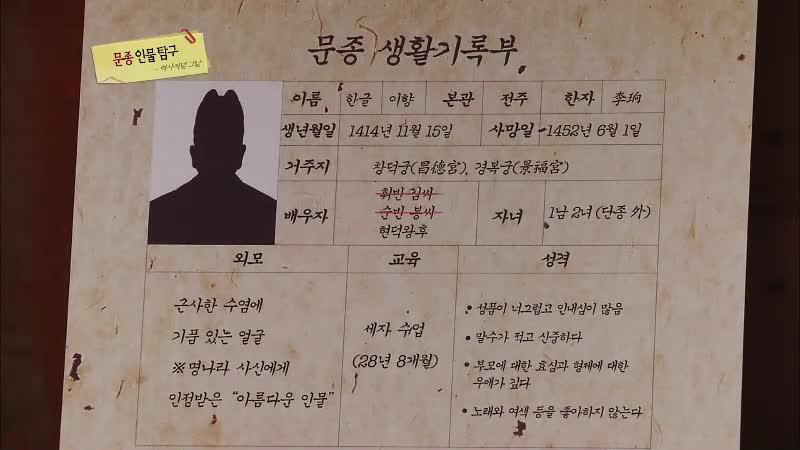 문종 인물 탐구
- 역사저널 그날
문종 생활기록부
이름 한글 이향 본관 전주 한자 李珦
생년월일 1414년 11월 15일 사망일 1452년 6월 1일
거주지 창덕궁(昌德宮), 경복궁(景福宮)
휘빈 김씨
순빈 봉씨
배우자 현덕왕후 자녀 1남 2녀 (단종 外)
외모 교육 성격
근사한 수염에
기품 있는 얼굴
※명나라 사신에게
인정받은 “아름다운 인물”
세자 수업
(28년 8개월)
• 성품이 너그럽고 인내심이 많음
• 말수가 적고 신중하다
• 부모에 대한 효심과 형제에 대한
우애가 깊다
• 노래와 여색 등을 좋아하지 않는다